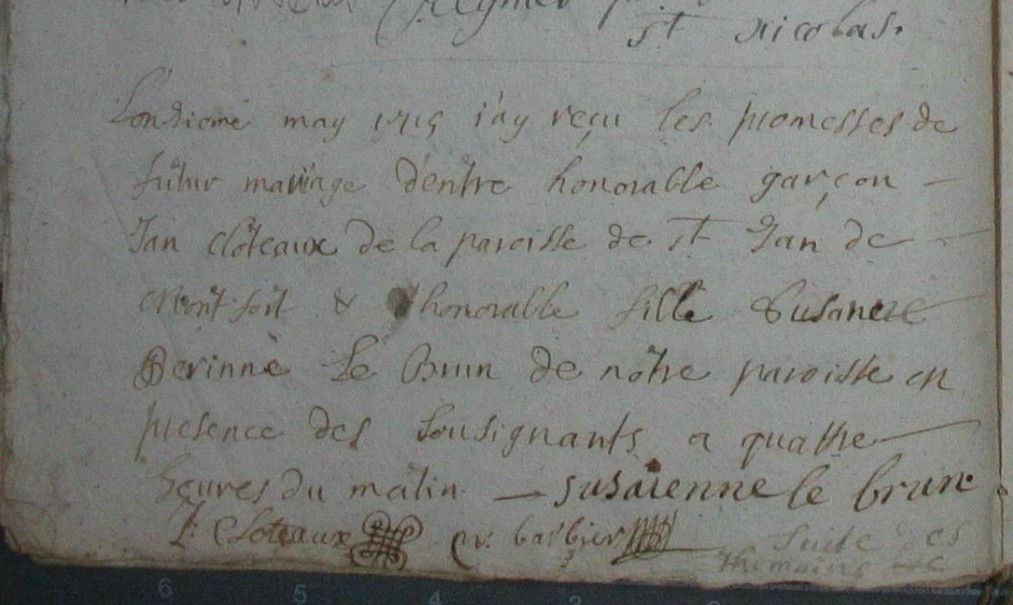 st nicolas.
L'onzieme may 1715 i'ay reçu les promesses de
futur mariage d'entre honorable garçon
Jan Clôteaux de la paroisse de st Jan de
Mont fort & honorable fille Susanne
Perinne Le Brun de nôtre paroisse en
presence des sousignants a quattre
heures du matin susaienne le brun
J: Cloteaux barbier
Suite des
themoins